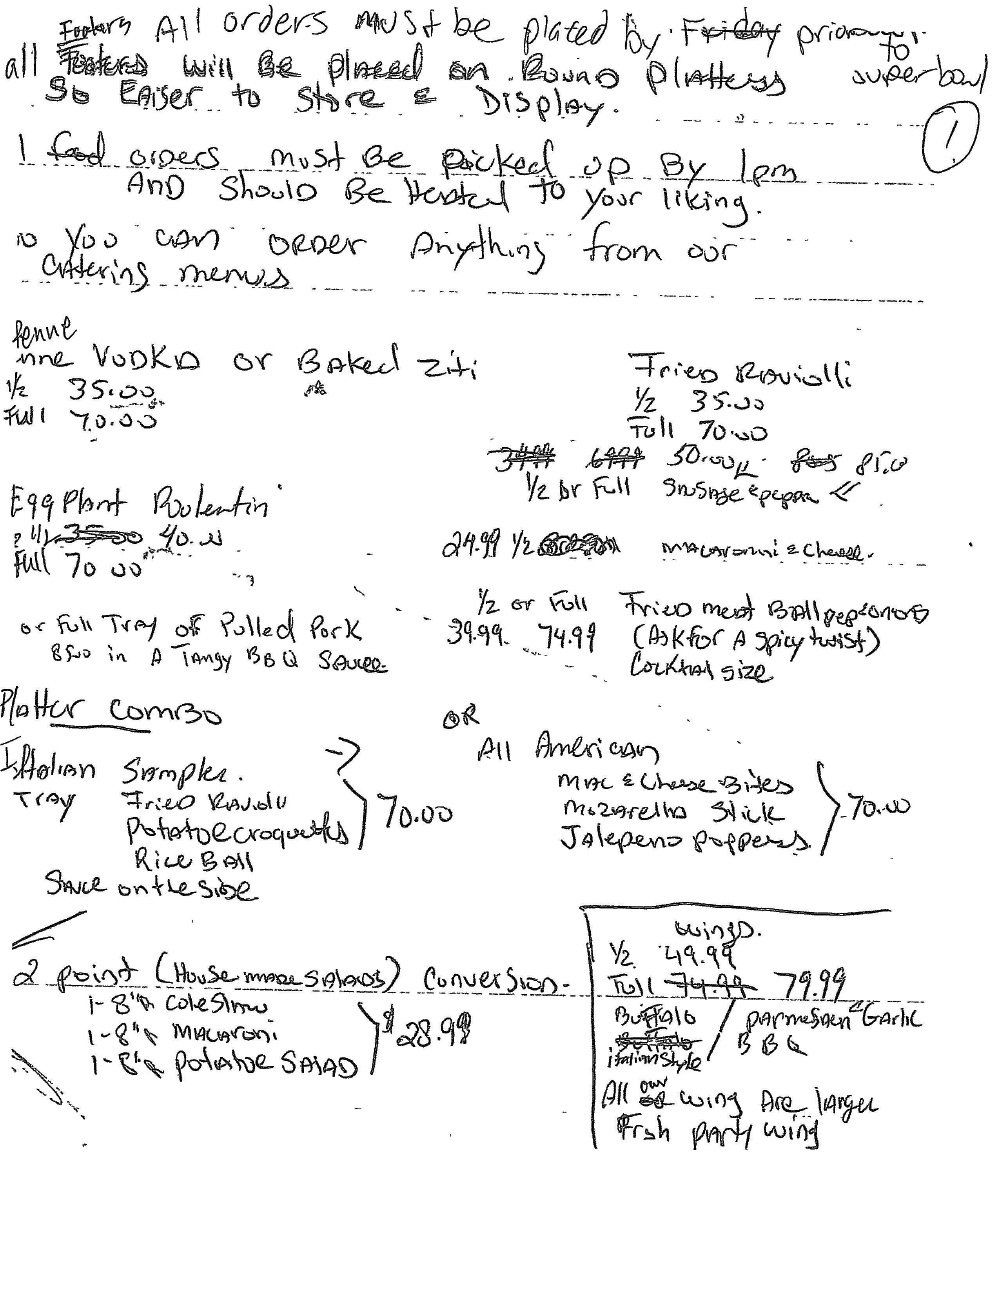 All orders must be plated by Friday prior to
all will Be placed on Round Platters superbowl
So Eaiser to Store & Display.
1
1 food orders must Be picked up By 1pm
AND Should Be Heated To your liking.
You CAN ORDER Anything from our
CAtering menus
Penne
VODKA or Baked Ziti
1/2 35.00
Full 70.00
Fried Raviolli
1/2 35.00
Full 70.00
34.99 69.99 50.00 85.0
1/2 or Full Sausage & pepper
Egg Plant Roulentin
35.00 40.00
Full 70 00
24.99 1/2 MACAronni & Cheese.
1/2 or Full Fried meat Ball pepperonis
39.99 74.99 (Ask for A spicy twist)
Cocktail size
or Full Tray of Pulled Pork
8500 in A Tangy BBQ SAuce
Platter combo
Ishtalian Sampler.
Tray Fried Raviolu
Potatoe croquetts
Rice BAll
70.00
Sauce on the side
OR
All American
MAC & Cheese Bites
Mozarella Stick
Jalepeno poppers
70.00
2 point (House made SALADS) Conversion.
1-8"R Coleslaw
1-8"R MACAroni
1-8"R Potatoe SALAD
$28.99
Wings.
1/2 49.99
Full 74.99 79.99
Buffalo / parmesaen & Garlic
Buffalo BBQ
italian Style
All our wing Are larger
Frsh party wing